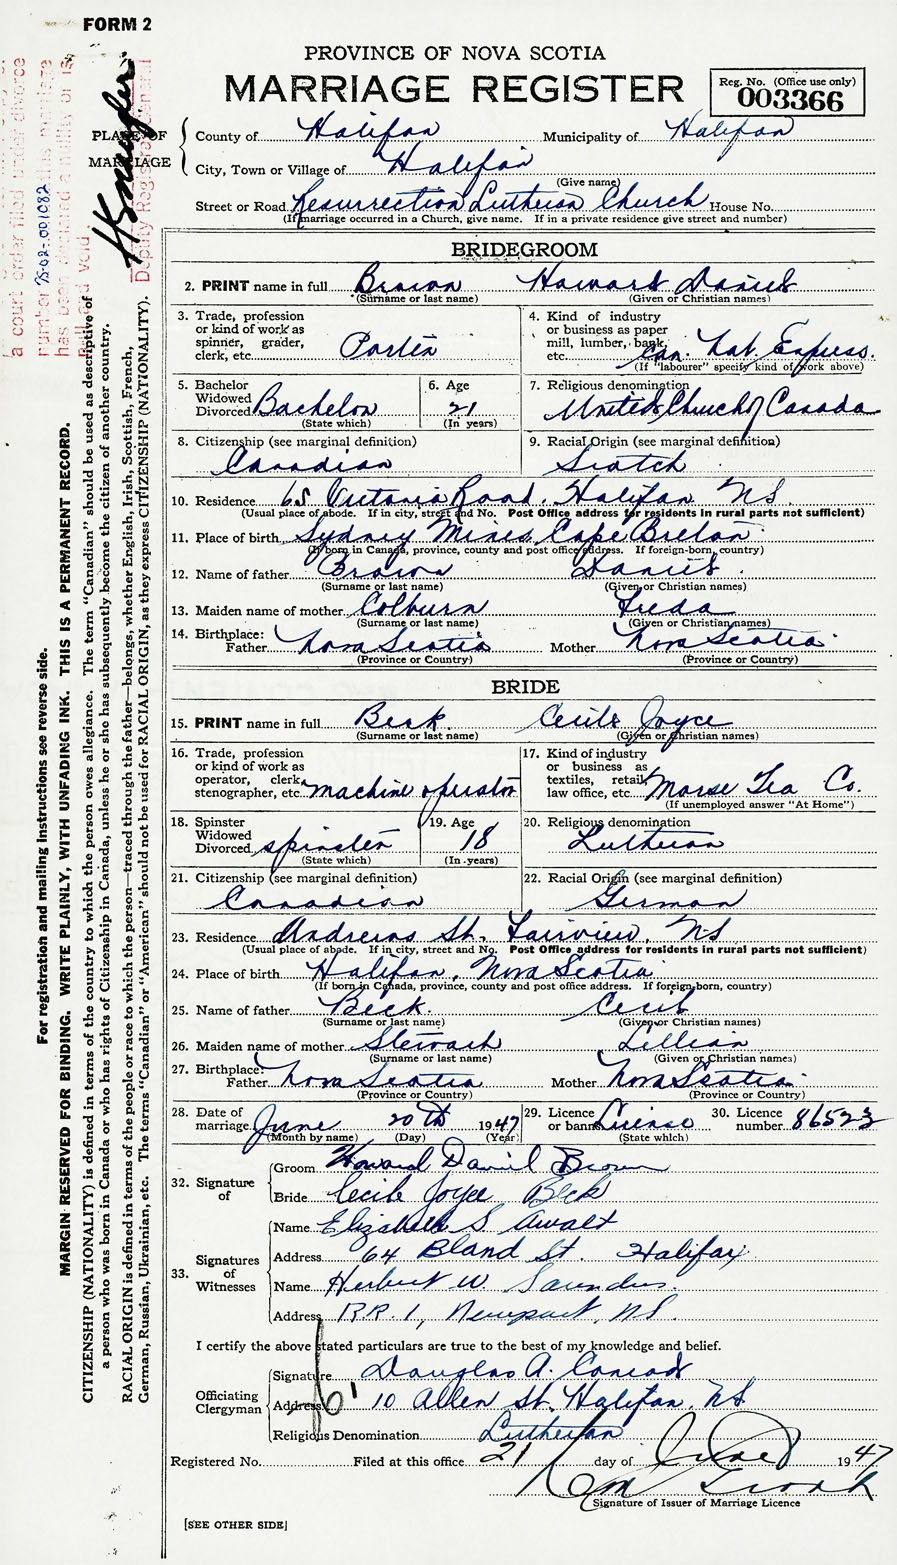 FORM 2
PROVINCE OF NOVA SCOTIA
MARRIAGE REGISTER
Reg. No. (Office use only)
003366
PLACE OF MARRIAGE
County of Halifax Municipality of Halifax
City, Town or Village of Halifax
(Give name)
Street or Road Resurrection Lutheran Church House No.
(If marriage occurred in a Church, give name. If in a private residence give street and number)
BRIDEGROOM
2. PRINT name in full Brown Howard Daniel
(Surname or last name) (Given or Christian names)
3. Trade, profession or kind of work as spinner, grader, clerk, etc. Porter
4. Kind of industry or business as paper mill, lumber, bank, etc. Can. Nat. Express.
(If "labourer" specify kind of work above)
5. Bachelor Widowed Divorced Bachelor
(State which)
6. Age 21
(In years)
7. Religious denomination
United Church of Canada
8. Citizenship (see marginal definition)
Canadian
9. Racial Origin (see marginal definition)
Scotch
10. Residence 65 Victoria Road, Halifax NS.
(Usual place of abode. If in city, street and No. Post Office address for residents in rural parts not sufficient)
11. Place of birth Sydney Mines, Cape Breton
(If born in Canada, province, county and post office address. If foreign-born, country)
12. Name of father Brown Daniel
(Surname or last name) (Given or Christian names)
13. Maiden name of mother Colburn Freda
(Surname or last name) (Given or Christian names)
14. Birthplace: Father Nova Scotia Mother Nova Scotia
(Province or Country) (Province or Country)
BRIDE
15. PRINT name in full Beck Cecile Joyce
(Surname or last name) (Given or Christian names)
16. Trade, profession or kind of work as operator, clerk, stenographer, etc. machine operator
17. Kind of industry or business as textiles, retail, law office, etc. Morse Tea Co.
(If unemployed answer "At Home")
18. Spinster Widowed Divorced spinster
(State which)
19. Age 18
(In years)
20. Religious denomination
Lutheran
21. Citizenship (see marginal definition)
Canadian
22. Racial Origin (see marginal definition)
German
23. Residence Andrews St., Fairview, NS
(Usual place of abode. If in city, street and No. Post Office address for residents in rural parts not sufficient)
24. Place of birth Halifax, Nova Scotia
(If born in Canada, province, county and post office address. If foreign-born, country)
25. Name of father Beck Cecil
(Surname or last name) (Given or Christian names)
26. Maiden name of mother Steward Lillian
(Surname or last name) (Given or Christian names)
27. Birthplace: Father Nova Scotia Mother Nova Scotia
(Province or Country) (Province or Country)
28. Date of marriage June 20th 1947
(Month by name) (Day) (Year)
29. Licence or banns License
(State which)
30. Licence number 86523
32. Signature of
Groom Howard Daniel Brown
Bride Cecile Joyce Beck
33. Signatures of Witnesses
Name Elizabeth S Awalt
Address 64 Bland St. Halifax
Name Herbert W. Saunders.
Address R.R. 1, Newport, N.S.
I certify the above stated particulars are true to the best of my knowledge and belief.
Officiating Clergyman
Signature Douglas A. Conrad
Address 10 Allen St, Halifax, NS
Religious Denomination Lutheran
Registered No. Filed at this office 21 day of June 1947
Signature of Issuer of Marriage Licence
[SEE OTHER SIDE]
For registration and mailing instructions see reverse side.
MARGIN RESERVED FOR BINDING. WRITE PLAINLY, WITH UNFADING INK. THIS IS A PERMANENT RECORD.
CITIZENSHIP (NATIONALITY) is defined in terms of the country to which the person owes allegiance. The term "Canadian" should be used as descriptive of
a person who was born in Canada or who has rights of Citizenship in Canada, unless he or she has subsequently become the citizen of another country.
RACIAL ORIGIN is defined in terms of the people or race to which the person—traced through the father—belongs, whether English, Irish, Scottish, French,
German, Russian, Ukrainian, etc. The terms "Canadian" or "American" should not be used for RACIAL ORIGIN, as they express CITIZENSHIP (NATIONALITY).
a court order filed under divorce
number 75-02-001082
has been
null and void
Deputy Registrar General